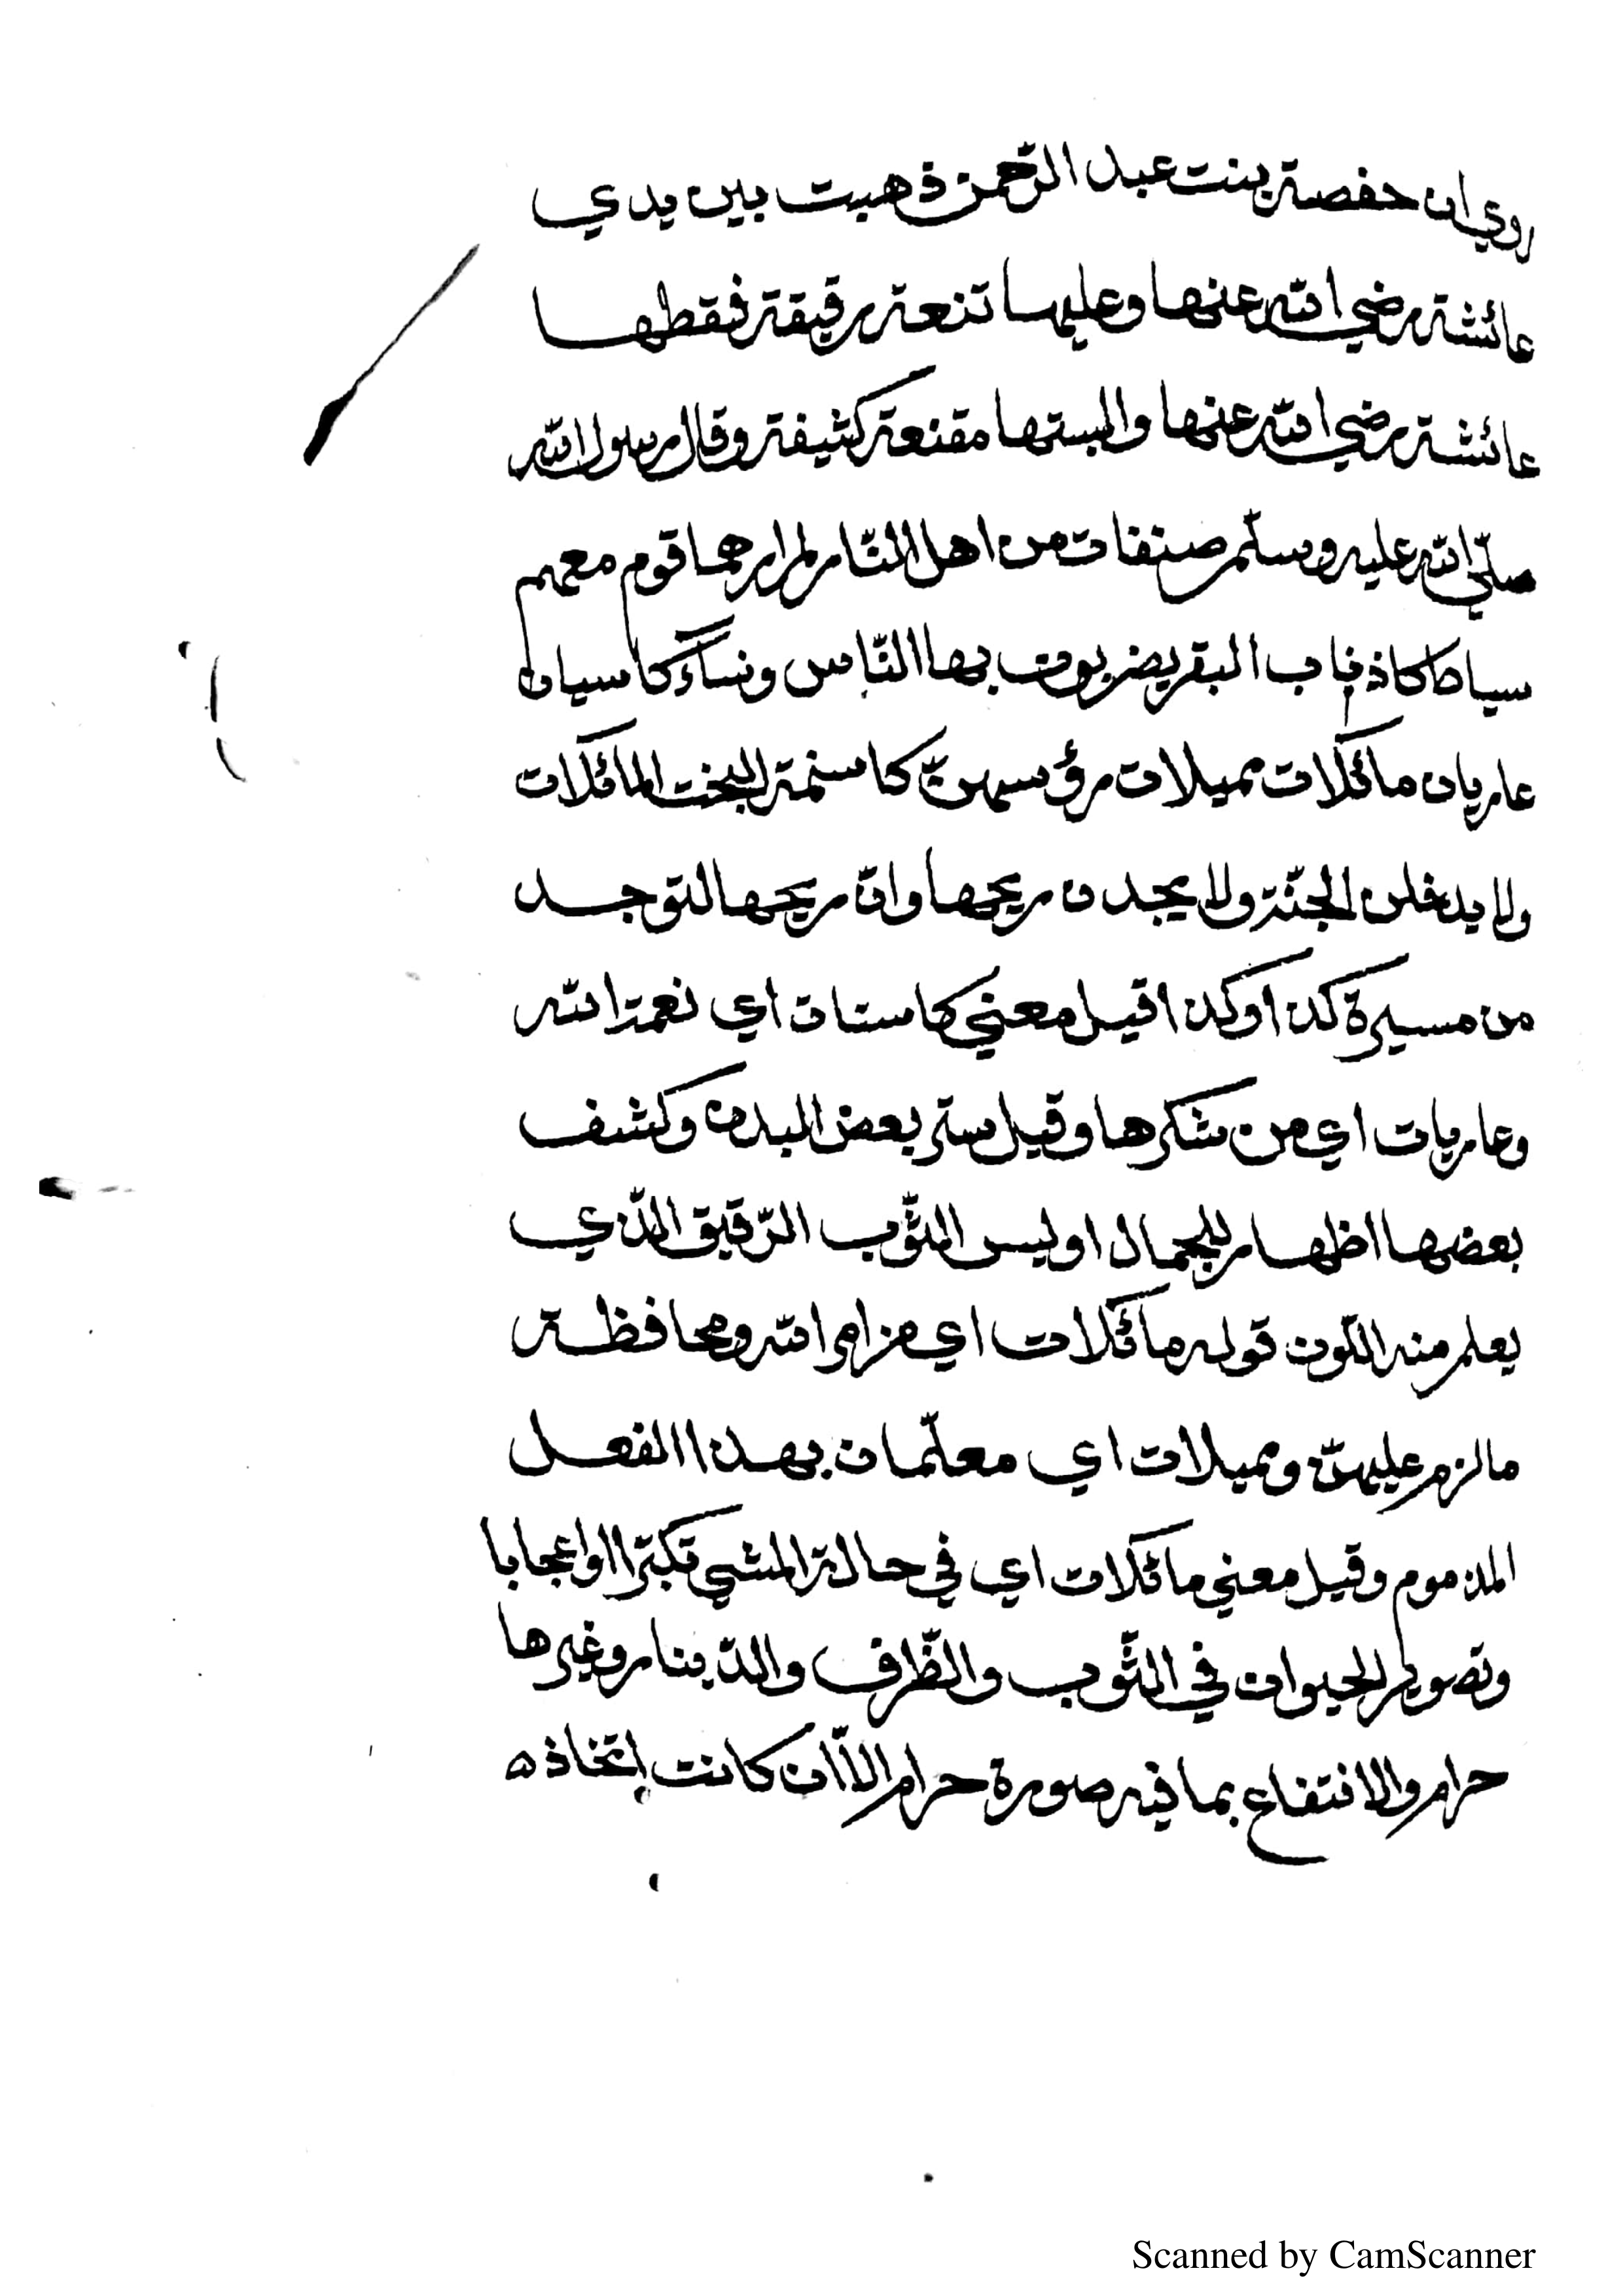 روي ان حفصة بنت عبد الرّحمن ذهبت بين يدي
عائشة رضي الله عنها وعليها تنعة رقيقة فقطها
عائشة رضي الله عنها والبستها مقنعة كثيفة وقال رسول الله
صلّي الله عليه وسلّم صنفات من اهل النّار لم ارهما قوم معهم
سياط كاذناب البقر يضربون بها النّاس ونساءٌ كاسيات
عاريات مائلات مميلات رؤسهنّ كاسنمة البخت المائلات
ولا يدخلن الجنّة ولا يجدن ريحها وانّ ريحها لتوجد
من مسيرة كذا وكذا قيل معني كاسات اي نعمة الله
وعاريات اي من شكرها وقيل ستر بعض البدن وكشف
بعضها اظهار للجمال او لبس الثّوب الرّقيق الذّي
يعلم منه اللّون قوله مائلات اي من امر الله ومحافظة
ما لزم عليهنّ ومميلات اي معلّمات بهذا الفعل
المذموم وقيل معني مائلات اي في حالة المشي تكبّرا او اعجابا
وتصوير الحيوان في الثّوب والظّرف والدّينار وغيرها
حرام والانتفاع بما فيه صورة حرام الّا ان كانت اتخاذه
Scanned by CamScanner